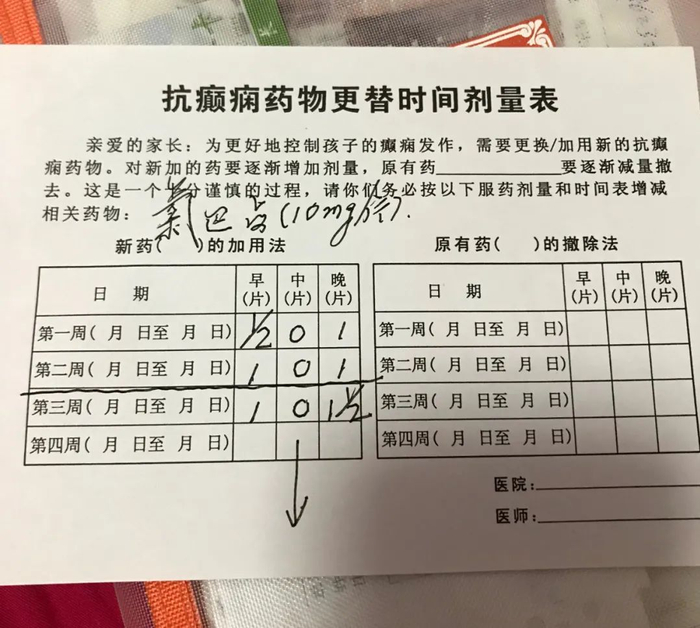 抗癫痫药物更替时间剂量表
亲爱的家长：为更好地控制孩子的癫痫发作，需要更换/加用新的抗癫
痫药物。对新加的药要逐渐增加剂量，原有药____________要逐渐减量撤
去。这是一个十分谨慎的过程，请你们务必按以下服药剂量和时间表增减
相关药物：氯巴占(10mg/片).
新药( )的加用法
日 期 早(片) 中(片) 晚(片)
第一周( 月 日至 月 日) 1/2 0 1
第二周( 月 日至 月 日) 1 0 1
第三周( 月 日至 月 日) 1 0 1 1/2
第四周( 月 日至 月 日)
原有药( )的撤除法
日 期 早(片) 中(片) 晚(片)
第一周( 月 日至 月 日)
第二周( 月 日至 月 日)
第三周( 月 日至 月 日)
第四周( 月 日至 月 日)
医院:____________
医师:____________